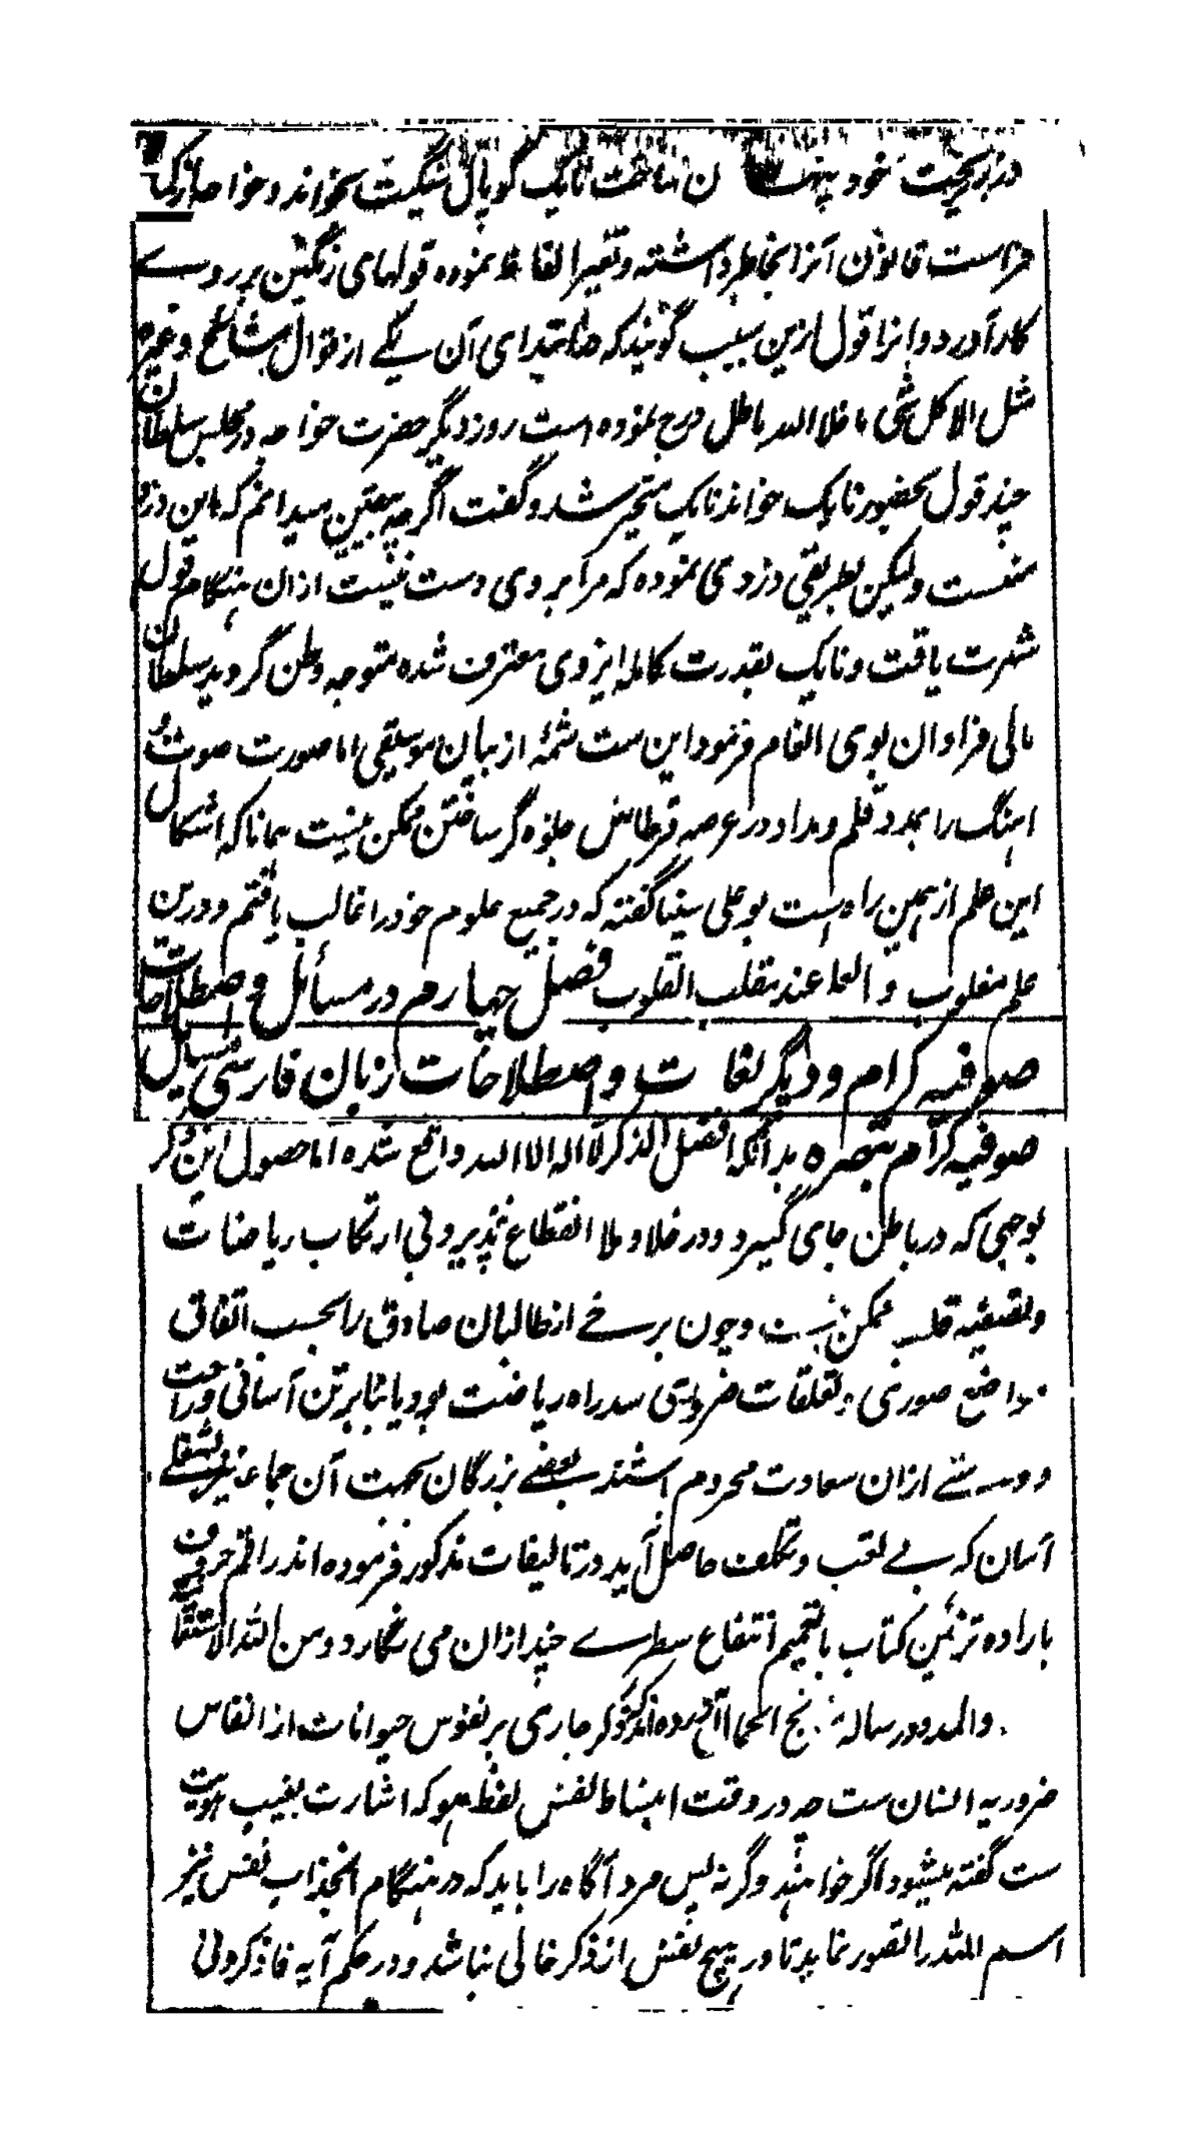 در زیر تخت خود پنهان ساخت نایک گوپال سنگیت بخواند و خواجه از کما
فراست قانون آنرا بخاطر داشته و تغیر الفاظ نموده قولهای رنگین بر روے
کار آورد و انرا قول ازین سبب گویند که در ابتدای آن یکے از قوال مشائخ و غیره
مثل الا کل شی ما خلا الله باطل درج نموده است روز دیگر حضرت خواجه در مجلس سلطان
چند قول بحضور نایک خواند نایک متحیر شد و گفت اگرچه بیقین میدانم که این دزد
منست ولیکن بطریقی دزدی نموده که مرا بر وی دست نیست ازان هنگام قول
شهرت یافت و نایک بقدرت کامله ایزدی معترف شده متوجه وطن گردید سلطان
مالی فراوان بوی انعام فرمود این ست شمهٔ از بیان موسیقی اما صورت صوت و
اهنگ را بمدد قلم و مداد در عرصه قرطاس جلوه گر ساختن ممکن نیست همانا که اشکال
این علم از همین راه است بو علی سینا گفته که در جمیع علوم خود را غالب یافتم و درین
علم مغلوب و العلم عند مقلب القلوب فصل چهارم در مسائل و اصطلاحات
صوفیه کرام و دیگر لغات و اصطلاحات زبان فارسی مسائل
صوفیه کرام تبصره بدانکه افضل الذکر لا اله الا الله واقع شده اما حصول این ذکر
بوجهی که در باطن جای گیرد و در خلا و ملا انقطاع نپذیرد بی ارتکاب ریاضات
و تصفیه قلب ممکن نیست و چون برخے از طالبان صادق را بحسب اتفاق
مواضع صوری و تعلقات ضروری سد راه ریاضت بود یا بنابر تن آسانی و راحت
دوستے ازان سعادت محروم باشند بعضے بزرگان بجهت آن جماعه نیز شغلے
آسان که بے تعب و تکلف حاصل آید در تالیفات مذکور فرموده اند راقم حروف
باراده تزئین کتاب با تعمیم انتفاع سطرے چند ازان می نگارد و من الله الاستقامة
والمدد در رساله آورده اند که ذکر جاری بر نفوس حیوانات از انفاس
ضروریه انسان ست چه در وقت انبساط نفس لفظ هو که اشارت بغیب هویت
ست گفته میشود اگر خواهند و گر نه پس مرد آگاه را باید که در هنگام انجذاب نفس نیز
اسم الله را تصور نماید تا در هیچ نفس از ذکر خالی نباشد و در حکم آیه فاذکرونی